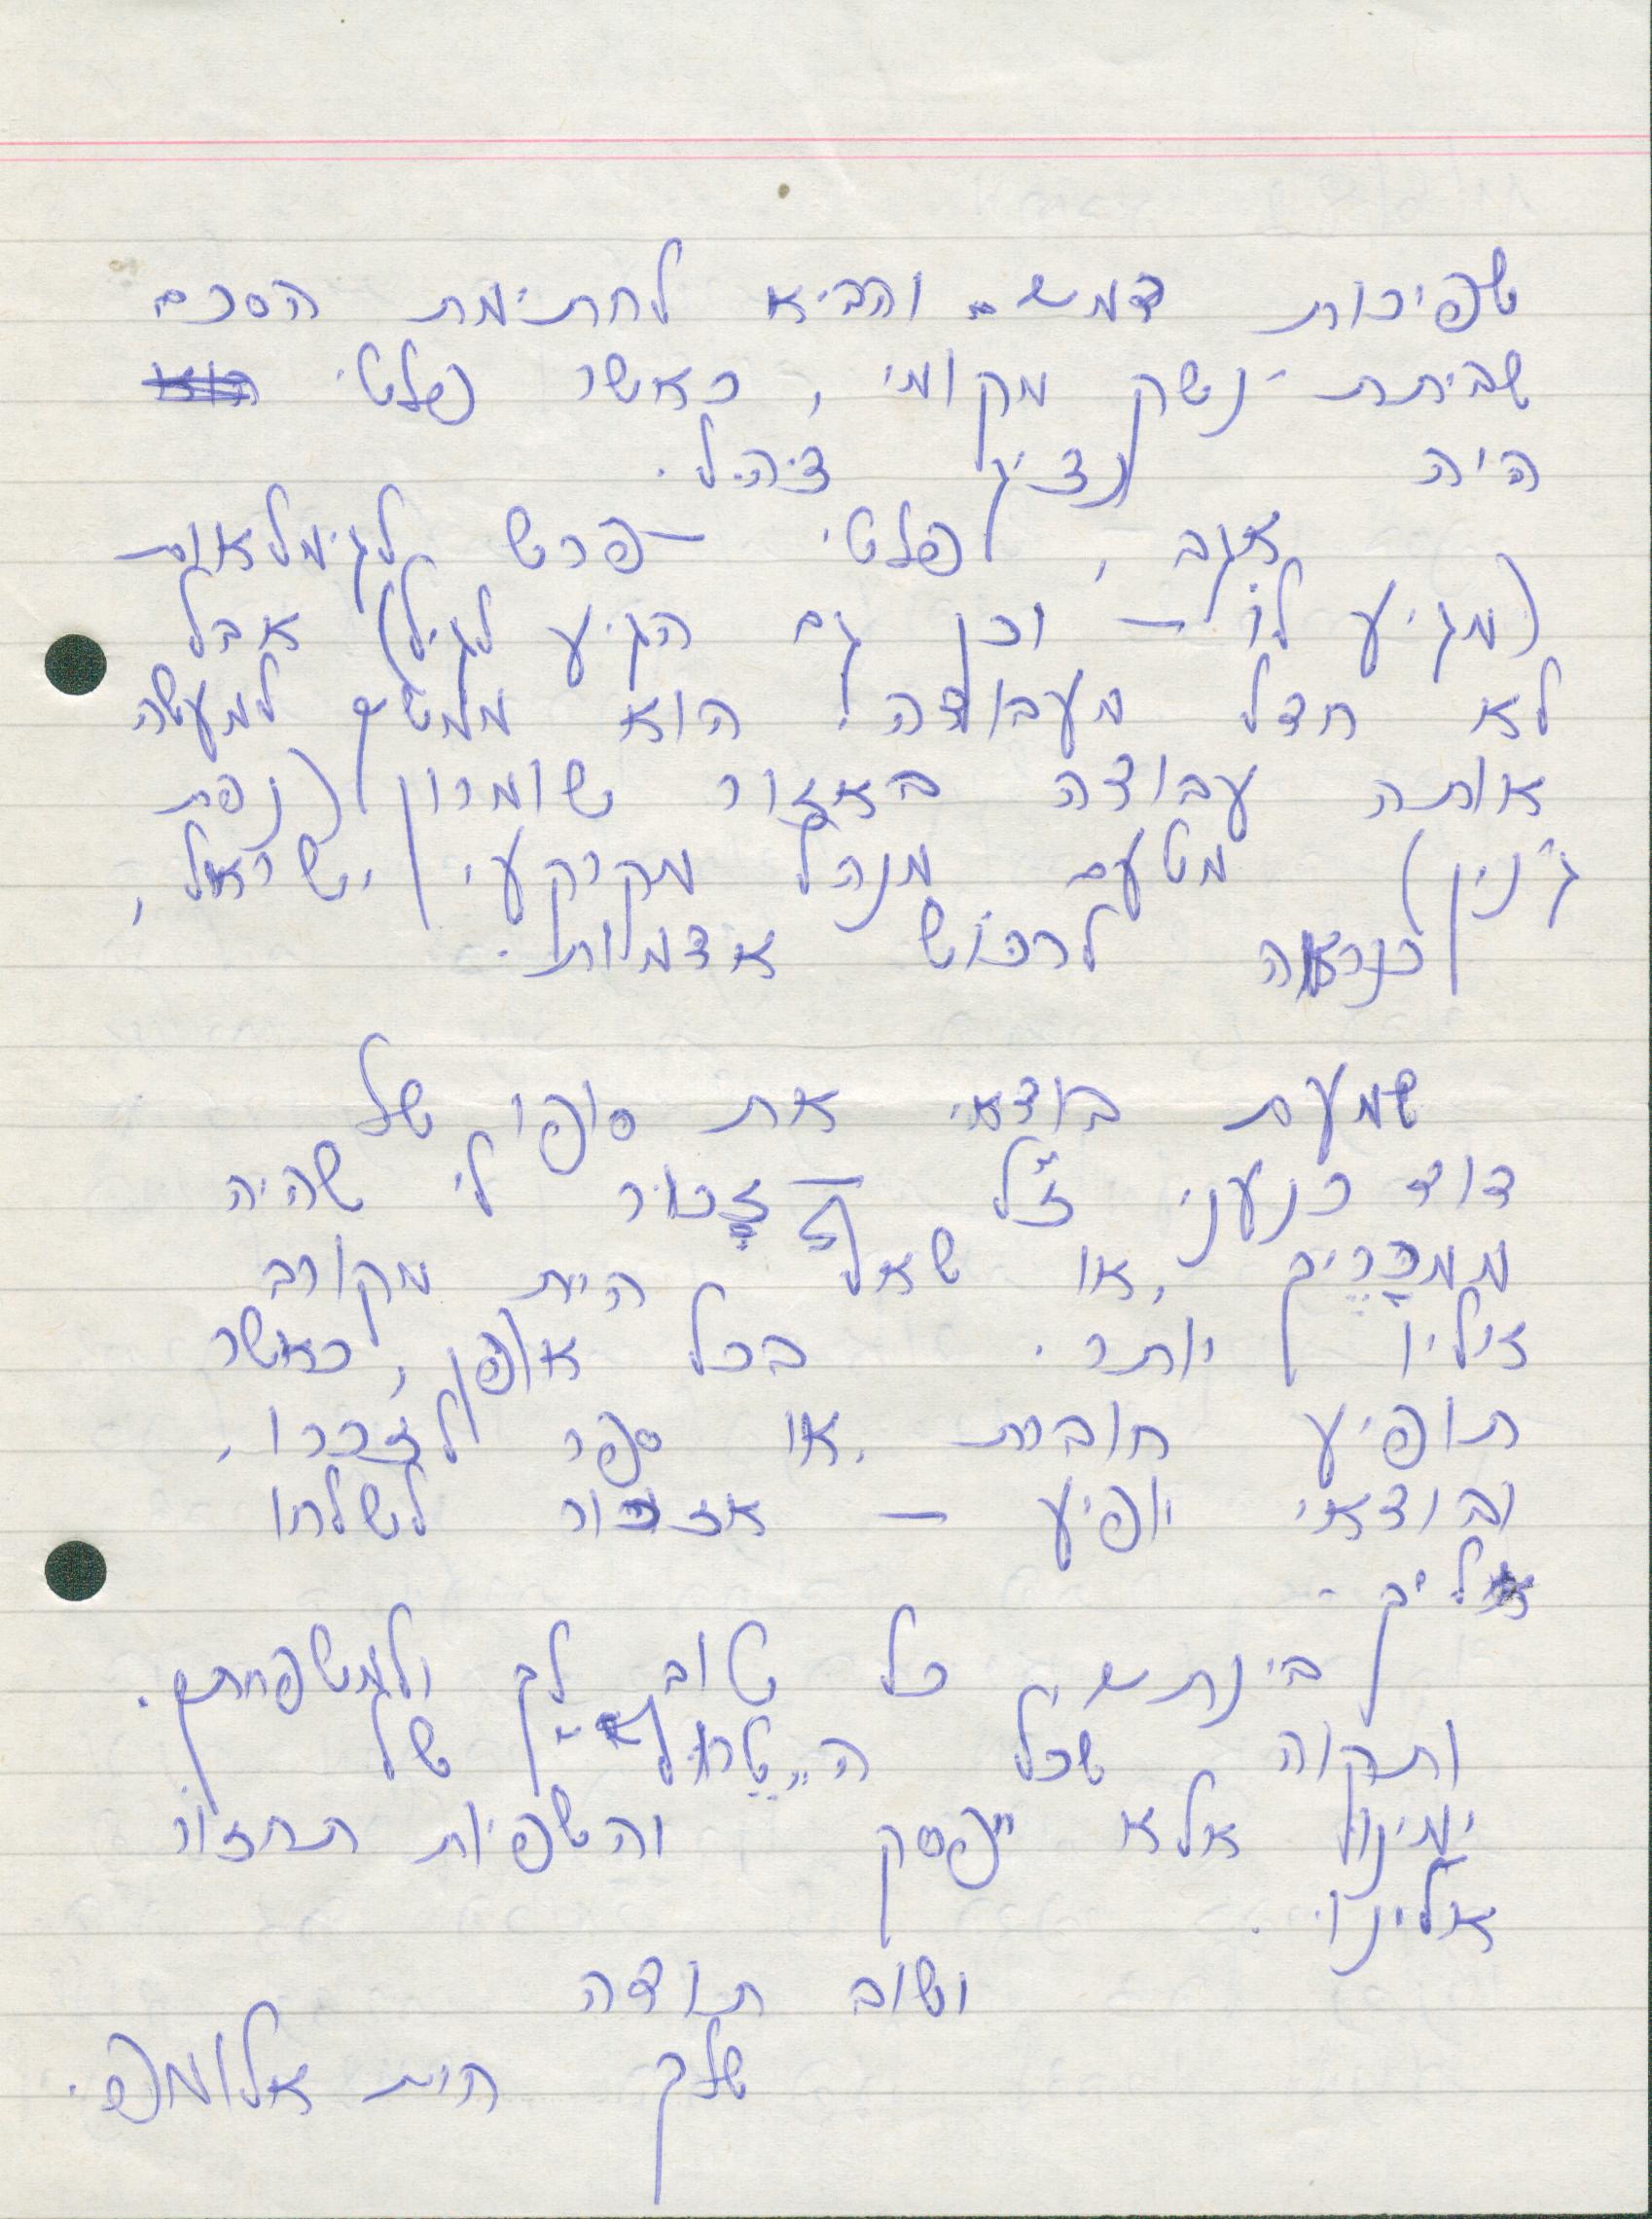 שפיכות דמים והביא לחתימת הסכם
שביתת-נשק מקומי, כאשר פלטי הוא
היה נציג צ.ה.ל.
אגב, פלטי – פרש לגימלאות
(מגיע לו – וכן גם הגיע לגיל) אבל
לא חדל מעבודה! הוא ממשיך למעשה
אותה עבודה באזור שומרון (נפת
ג'נין) מטעם מנהל מקרקעי ישראל,
כנראה לרכוש אדמות.
שמעת בודאי את סופו של
דוד כנעני ז"ל – זכור לי שהיה
ממכריך, או שאול היה מקורב
אליו יותר. בכל אופן, כאשר
תופיע חוברת או ספר לזכרו,
ובודאי יופיע – אזכור לשלחו
אליך.
בינתיים כל טוב לך ולמשפחתך.
ותקוה שכל ה"טרול של
ימינו אלא ייפסק והשפיות תחזור
אלינו.
ושוב תודה
שלך